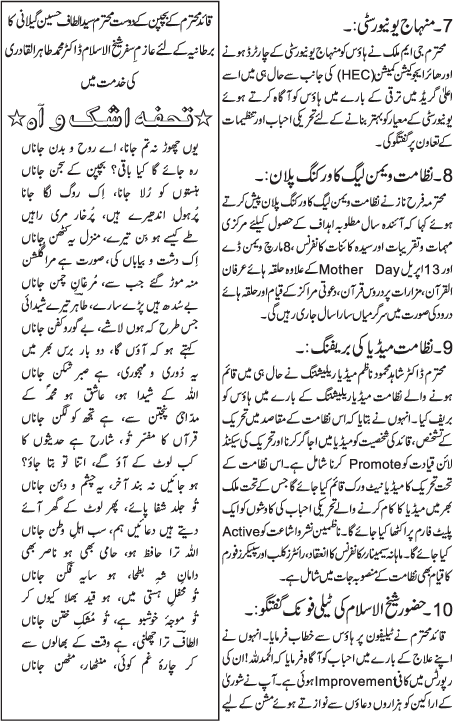 7۔ منہاج یونیورسٹی:۔
محترم جی ایم ملک نے ہاؤس کو منہاج یونیورسٹی کے چارٹرڈ ہونے
اور ھائر ایجوکیشن کمیشن (HEC) کی جانب سے حال ہی میں اسے
اعلیٰ گریڈ میں ترقی کے بارے میں ہاؤس کو آگاہ کرتے ہوئے
یونیورسٹی کے معیار کو بہتر بنانے کے لئے تحریکی احباب اور تنظیمات
کے تعاون پر گفتگو کی۔
8۔ نظامت ویمن لیگ کا ورکنگ پلان:۔
محترمہ فرح ناز نے نظامت ویمن لیگ کا ورکنگ پلان پیش کرتے
ہوئے کہا کہ آئندہ سال مطلوبہ اہداف کے حصول کیلئے مرکزی
مہمات و تقریبات اور سیدہ کائنات کانفرنس، 8 مارچ ویمن ڈے
اور 13 اپریل Mother Day کے علاوہ حلقہ ہائے عرفان
القرآن، مزارات پر دروس قرآن، دعوتی مراکز کے قیام اور حلقہ ہائے
درود کی صورت میں سرگرمیاں سارا سال جاری رہیں گی۔
9۔ نظامت میڈیا کی بریفنگ:۔
محترم ڈاکٹر شاہد محمود ناظم میڈیا ریلیشنگ نے حال ہی میں قائم
ہونے والے نظامت میڈیا ریلیشنگ کے بارے میں ہاؤس کو
بریف کیا۔ انہوں نے بتایا کہ اس نظامت کے مقاصد میں تحریک
کے تشخص، قائد کی شخصیت کو میڈیا میں اجاگر کرنا اور تحریک کی سیکنڈ
لائن قیادت کو Promote کرنا شامل ہے۔ اس نظامت کے
تحت تحریک کا میڈیا نیٹ ورک قائم کیا جائے گا جس کے تحت ملک
بھر میں میڈیا کا کام کرنے والے تحریکی احباب کی کاوشوں کو ایک
پلیٹ فارم پر اکٹھا کیا جائے گا۔ ناظمین نشر و اشاعت کو Active
کیا جائے گا۔ ماہانہ سیمینار، کانفرنس کا انعقاد، رائٹرز کلب اور سپیکرز فورم
کا قیام بھی نظامت کے منصوبہ جات میں شامل ہے۔
10۔ حضور شیخ الاسلام کی ٹیلی فونک گفتگو:۔
قائد محترم نے ٹیلیفون پر ہاؤس سے خطاب فرمایا۔ انہوں نے
اپنے علاج کے بارے میں احباب کو آگاہ فرمایا کہ الحمدللہ! ان کی
رپورٹس میں کافی Improvement ہوئی ہے۔ آپ نے شوریٰ
کے اراکین کو ہزاروں دعاؤں سے نوازتے ہوئے مشن کے لیے
قائد محترم کے بچپن کے دوست محترم سید الطاف حسین گیلانی کا
برطانیہ کے لئے عازم سفر شیخ الاسلام ڈاکٹر محمد طاہر القادری
کی خدمت میں
☆تحفہ اشک و آہ☆
یوں چھوڑ نہ تم جانا، اے روح و بدن جاناں
رہ جائے گا کیا باقی؟ بچپن کے سجن جاناں
ہنستوں کو رُلا جانا، اِک روگ لگا جانا
پُرہول اندھیرے ہیں، پُرخار مری راہیں
طے کیسے ہو بن تیرے، منزل یہ کٹھن جاناں
اِک دشت و بیاباں کی، صورت ہے مرا گلشن
منہ موڑ گئے جب سے، مرغانِ چمن جاناں
بے سُدھ ہیں پڑے سارے، طاہر تیرے شیدائی
جس طرح کہ ہوں لاشے، بے گور و کفن جاناں
کہتے ہو کہ آؤں گا، دو بار برس بھر میں
یہ دُوری و مہجوری، ہے صبر شکن جاناں
اللہ کے شیدا ہو، عاشق ہو محمدؐ کے
مداحِ پنجتن سے، ہے تجھ کو لگن جاناں
قرآں کا مفسر تُو، شارح ہے حدیثوں کا
کب لوٹ کے آؤ گے، اتنا تو بتا جاؤ؟
ہو جائیں نہ بند آخر، یہ چشم و دہن جاناں
تُو جلد شفا پائے، پھر لوٹ کے گھر آئے
دیتے ہیں دعائیں ہم، سب اہلِ وطن جاناں
اللہ ترا حافظ ہو، حامی بھی ہو ناصر بھی
دامانِ شہِ بطحا، ہو سایہ فگن جاناں
تُو محفلِ ہستی میں، ہو قید بھلا کیوں کر
تُو موجۂ خوشبو ہے، تو مُشکِ ختن جاناں
الطاف ترا چھلنی، ہے وقت کے بھالوں سے
کر چارۂ غم کوئی، منٹھار، مٹھن جاناں